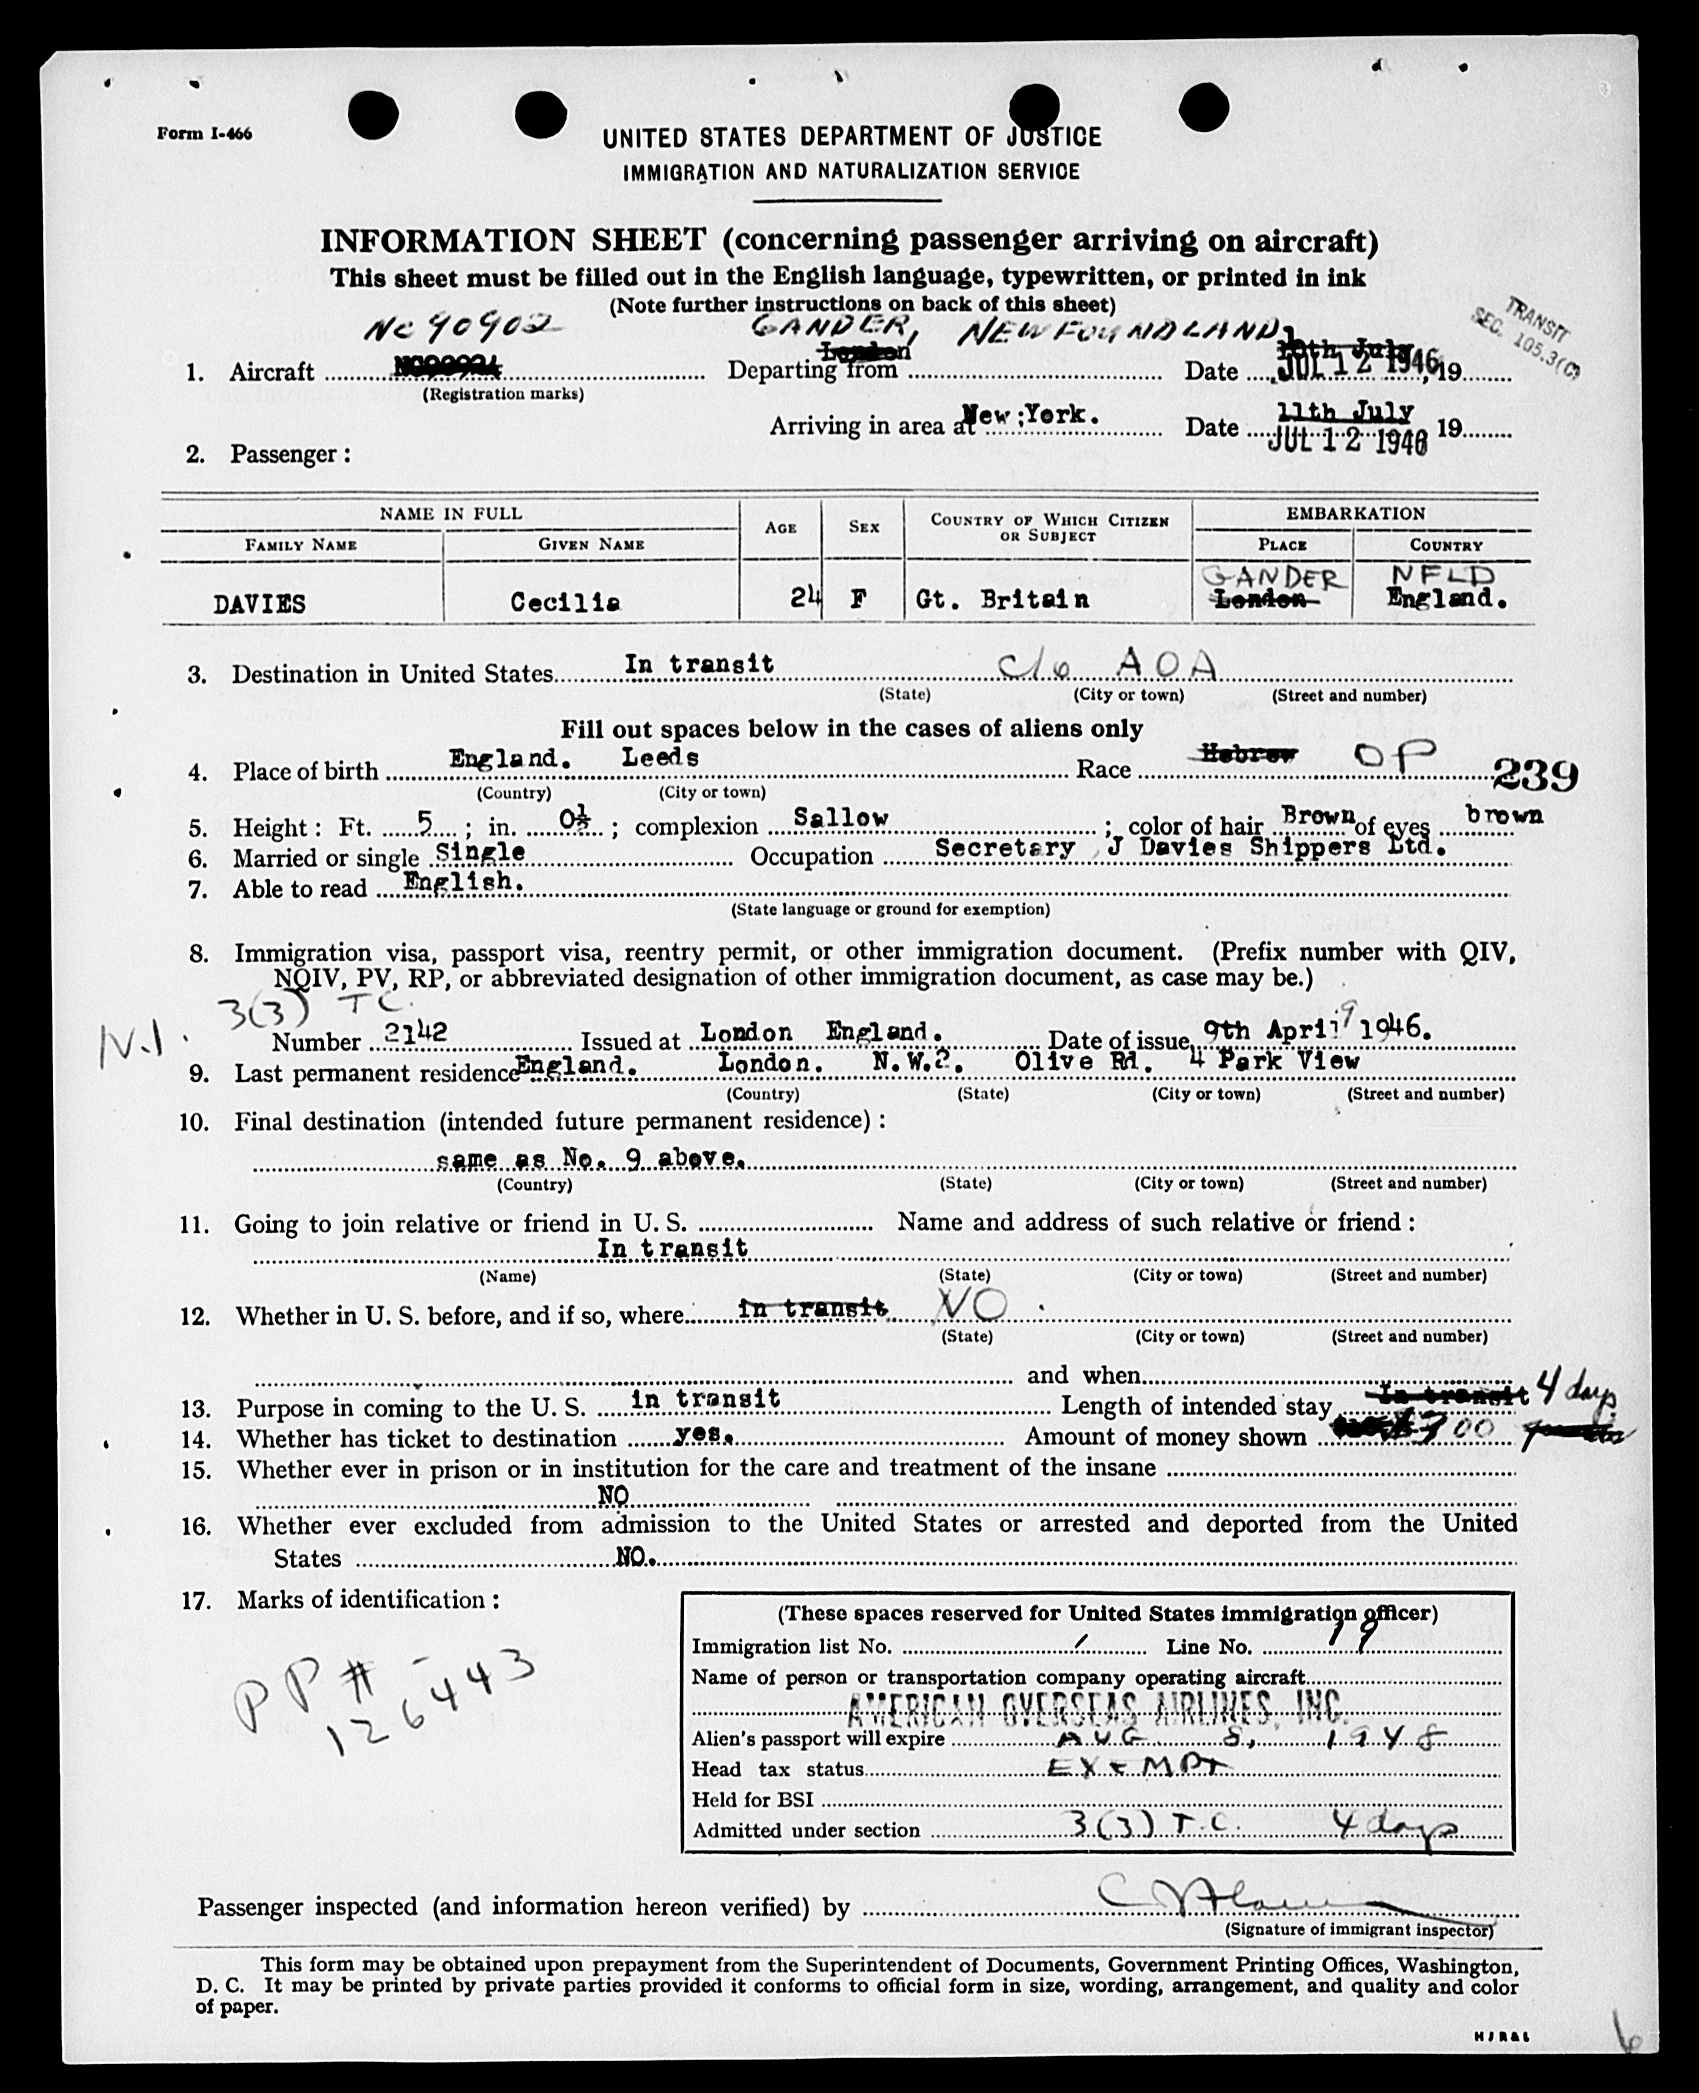 Form I-466
UNITED STATES DEPARTMENT OF JUSTICE
IMMIGRATION AND NATURALIZATION SERVICE
INFORMATION SHEET (concerning passenger arriving on aircraft)
This sheet must be filled out in the English language, typewritten, or printed in ink
(Note further instructions on back of this sheet)
TRANSIT
SEC. 105.3(C)
NC 90902 GANDER, NEWFOUNDLAND
London 10th July
1. Aircraft Departing from Date JUL 12 1946, 19
(Registration marks)
11th July
Arriving in area at New York. Date JUL 12 1946 19
2. Passenger:
NAME IN FULL AGE SEX COUNTRY OF WHICH CITIZEN OR SUBJECT EMBARKATION
FAMILY NAME GIVEN NAME PLACE COUNTRY
GANDER NFLD
DAVIES Cecilia 24 F Gt. Britain London England.
3. Destination in United States In transit c/o AOA
(State) (City or town) (Street and number)
Fill out spaces below in the cases of aliens only
4. Place of birth England. Leeds Race Hebrew OP 239
(Country) (City or town)
5. Height: Ft. 5; in. 0½; complexion Sallow; color of hair Brown of eyes brown
6. Married or single Single Occupation Secretary J Davies Shippers Ltd.
7. Able to read English.
(State language or ground for exemption)
8. Immigration visa, passport visa, reentry permit, or other immigration document. (Prefix number with QIV,
NQIV, PV, RP, or abbreviated designation of other immigration document, as case may be.)
3(3) TC.
N.I. Number 2142 Issued at London England. Date of issue 9th April 9 1946.
9. Last permanent residence England. London. N.W.2. Olive Rd. 4 Park View
(Country) (State) (City or town) (Street and number)
10. Final destination (intended future permanent residence):
same as No. 9 above.
(Country) (State) (City or town) (Street and number)
11. Going to join relative or friend in U. S. Name and address of such relative or friend:
In transit
(Name) (State) (City or town) (Street and number)
12. Whether in U. S. before, and if so, where in transit NO.
(State) (City or town) (Street and number)
and when
13. Purpose in coming to the U. S. in transit Length of intended stay In transit 4 days
14. Whether has ticket to destination yes. Amount of money shown
15. Whether ever in prison or in institution for the care and treatment of the insane
NO
16. Whether ever excluded from admission to the United States or arrested and deported from the United
States NO.
17. Marks of identification:
PP # 126443
(These spaces reserved for United States immigration officer)
Immigration list No. 1 Line No. 19
Name of person or transportation company operating aircraft
AMERICAN OVERSEAS AIRLINES, INC.
Alien's passport will expire AUG 8, 1948
Head tax status EXEMPT
Held for BSI
Admitted under section 3(3) T.C. 4 days
Passenger inspected (and information hereon verified) by
(Signature of immigrant inspector)
This form may be obtained upon prepayment from the Superintendent of Documents, Government Printing Offices, Washington,
D. C. It may be printed by private parties provided it conforms to official form in size, wording, arrangement, and quality and color
of paper.
6